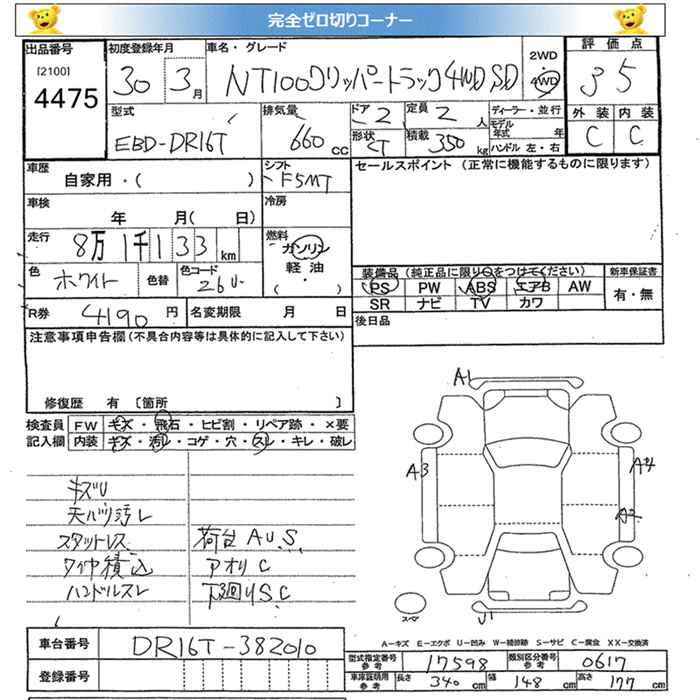 完全ゼロ切りコーナー
出品番号 初度登録年月 車名・グレード 2WD・4WD 評価点
[2100]
4475
30年 3月 NT100クリッパートラック4WD SD 3 5
型式 排気量 ドア 2 定員 2人 ディーラー・並行 外装 内装
EBD-DR16T 660cc 形状 CT 積載 350kg モデル年式 年 C C
ハンドル 左・右
車歴 シフト セールスポイント (正常に機能するものに限ります)
自家用・( ) F5MT
車検 冷房
年 月( 日)
走行 8万1千133km 燃料 ガソリン
色 ホワイト 色替 色コード 26U 軽油 装備品 (純正品に限り○をつけてください) 新車保証書
( ・ ) PS PW ABS エアB AW 有・無
SR ナビ TV カワ
R券 4190円 名変期限 月 日 後日品
注意事項申告欄 (不具合内容等は具体的に記入して下さい)
修復歴 有 [箇所 ]
検査員 FW キズ・飛石・ヒビ割・リペア跡・×要
記入欄 内装 キズ・汚れ・コゲ・穴・スレ・キレ・破レ
A1
A3
A4
A2
キズU
天バリ汚レ
スタットレス 荷台 A U.S.
タイヤ積込 アオリ C
ハンドルスレ 下廻りS.C
スペア
U1
A-キズ E-エクボ U-凹み W-補修跡 S-サビ C-腐食 XX-交換済
車台番号 DR16T-382010
型式指定番号 参考 17598 類別区分番号 参考 0617
登録番号
車庫証明用 参考 長さ 340cm 幅 148cm 高さ 177cm